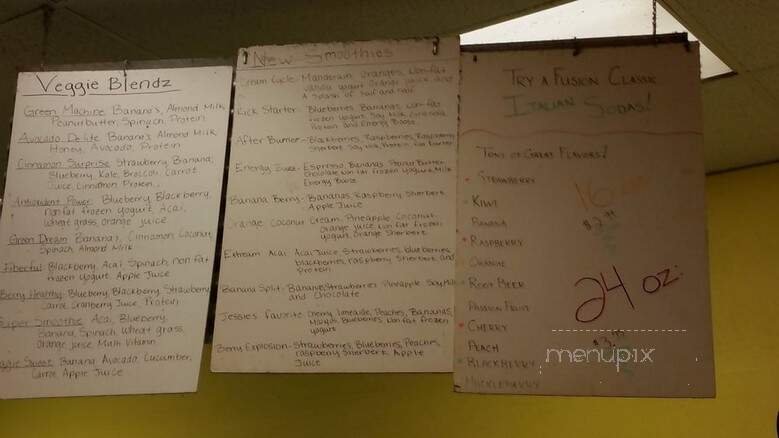 Veggie Blendz
Green Machine Banana's, Almond Milk,
Peanutbutter, Spinach, Protein
Avocado De lite Banana's Almond Milk
Honey, Avocado, Protein
Cinnamon Surprise Strawberry Banana,
Blueberry, Kale, Broccoli, Carrot
Juice, Cinnamon, Protein
Antioxident Power Blueberry Blackberry,
non fat frozen yogurt, acai,
wheat grass, orange juice
Green Dream Banana's, Cinnamon, Coconut,
Spinach, Almond Milk
Fiberful Blackberry, Acai Spinach, non fat
frozen yogurt, Apple Juice
Berry Healthy Blueberry, Blackberry, Strawberry
Carrot, Cranberry Juice, Protein
Super Smoothie Acai, Blueberry,
Banana, Spinach, wheat grass,
orange juice, Multi Vitamin
Veggie Sweet Banana Avocado, Cucumber,
Carrot, Apple Juice
New Smoothies
Cream Cycle- Mandarin Oranges, Non-fat
vanilla yogurt, Orange juice and
A splash of half and half
Kick Starter- Blueberries Bananas, Non-fat
frozen yogurt, Soy Milk
Protein and Energy Boost
After Burner- Blackberries, Raspberries, Raspberry
Sherbert Soy Milk, Protein, Fat Burner
Energy Juice- Espresso, Bananas Peanut Butter
Chocolate non fat frozen yogurt, Milk
Energy Boost
Banana Berry- Bananas, Raspberry Sherberte
Apple Juice
Orange Coconut Cream- Pineapple Coconut
Orange juice non fat frozen
yogurt, Orange Sherberte
Extream Acai- Acai Juice, Strawberries, blueberries,
blackberries, raspberry Sherbert and
Protein
Banana Split- Bananas Strawberries Pineapple Soy Milk
and Chocolate
Jessies Favorite- Cherry, limeade, Peaches, Bananas,
Mangos Blueberries Non fat frozen
yogurt
Berry Explosion- Strawberries, Blueberries, Peaches,
raspberry Sherberte Apple
Juice
TRY A FUSION CLASSIC
ITALIAN SODAS!
TONS OF GREAT FLAVORS!
STRAWBERRY
KIWI
BANANA
RASPBERRY
ORANGE
ROOT BEER
PASSION FRUIT
CHERRY
PEACH
BLACKBERRY
HUCKLEBERRY
16
$2.99
24 oz.
menupix